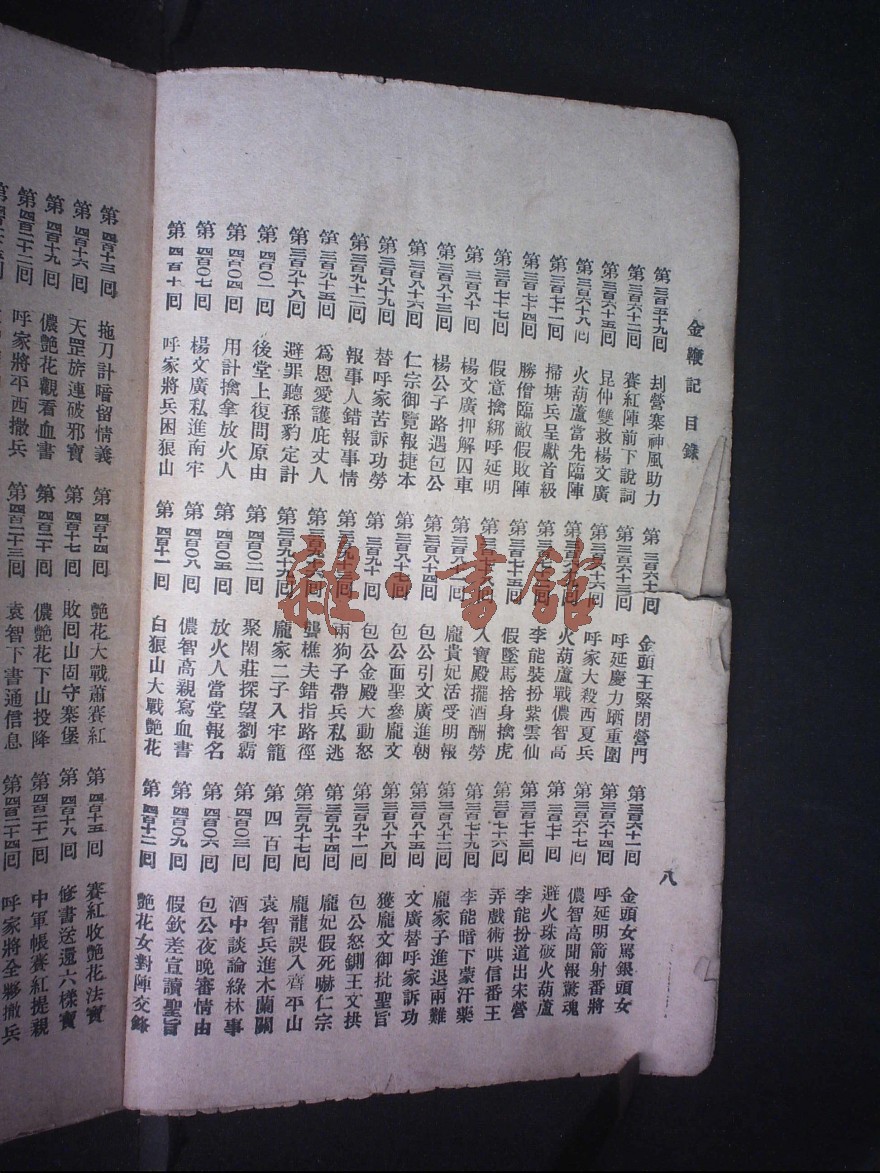 金鞭記 目錄
八
第三百五十九回 刦營寨神風助力 第三百六十回 金頭王緊閉營門 第三百六十一回 金頭女罵銀頭女
第三百六十二回 賽紅陣前下說詞 第三百六十三回 呼延慶力跴重圍 第三百六十四回 呼延明箭射番將
第三百六十五回 昆仲雙救楊文廣 第三百六十六回 呼家大殺西夏兵 第三百六十七回 儂智高聞報驚魂
第三百六十八回 火葫蘆當先臨陣 第三百六十九回 火葫蘆戰儂智高 第三百七十回 避火珠破火葫蘆
第三百七十一回 掃塘兵呈獻首級 第三百七十二回 李能裝扮紫雲仙 第三百七十三回 李能扮道出宋營
第三百七十四回 勝僧臨敵假敗陣 第三百七十五回 假墜馬捨身擒虎 第三百七十六回 弄戲術哄信番王
第三百七十七回 假意擒綁呼延明 第三百七十八回 入寶殿擺酒酬勞 第三百七十九回 李能暗下蒙汗藥
第三百八十回 楊文廣押解囚車 第三百八十一回 龐貴妃活受明報 第三百八十二回 龐家子進退兩難
第三百八十三回 楊公子路遇包公 第三百八十四回 包公引文廣進朝 第三百八十五回 文廣替呼家訴功
第三百八十六回 仁宗御覽報捷本 第三百八十七回 包公面聖參龐文 第三百八十八回 獲龐文御批聖旨
第三百八十九回 替呼家苦訴功勞 第三百九十回 包公金殿大動怒 第三百九十一回 包公怒鍘王文拱
第三百九十二回 報事人錯報事情 第三百九十三回 兩狗子帶兵私逃 第三百九十四回 龐妃假死嚇仁宗
第三百九十五回 爲恩愛護庇丈人 第三百九十六回 龔樵夫錯指路徑 第三百九十七回 龐龍誤入齊平山
第三百九十八回 避罪聽孫豹定計 第三百九十九回 龐家二子入牢籠 第四百回 袁智兵進木蘭關
第四百〇一回 後堂上復問原由 第四百〇二回 聚閑莊探望劉霸 第四百〇三回 酒中談論綠林事
第四百〇四回 用計擒拿放火人 第四百〇五回 放火人當堂報名 第四百〇六回 包公夜晚審情由
第四百〇七回 楊文廣私進南牢 第四百〇八回 儂智高親寫血書 第四百〇九回 假欽差宣讀聖旨
第四百十回 呼家將兵困狼山 第四百十一回 白狼山大戰艷花 第四百十二回 艷花女對陣交鋒
第四百十三回 拖刀計暗留情義 第四百十四回 艷花大戰蕭賽紅 第四百十五回 賽紅收艷花法寶
第四百十六回 天罡旂連破邪寶 第四百十七回 敗回山固守寨堡 第四百十八回 修書送還六樣寶
第四百十九回 儂艷花觀看血書 第四百二十回 儂艷花下山投降 第四百二十一回 中軍帳賽紅提親
第四百二十二回 呼家將平西撒兵 第四百二十三回 袁智下書通信息 第四百二十四回 呼家將全夥撤兵
雜·書館